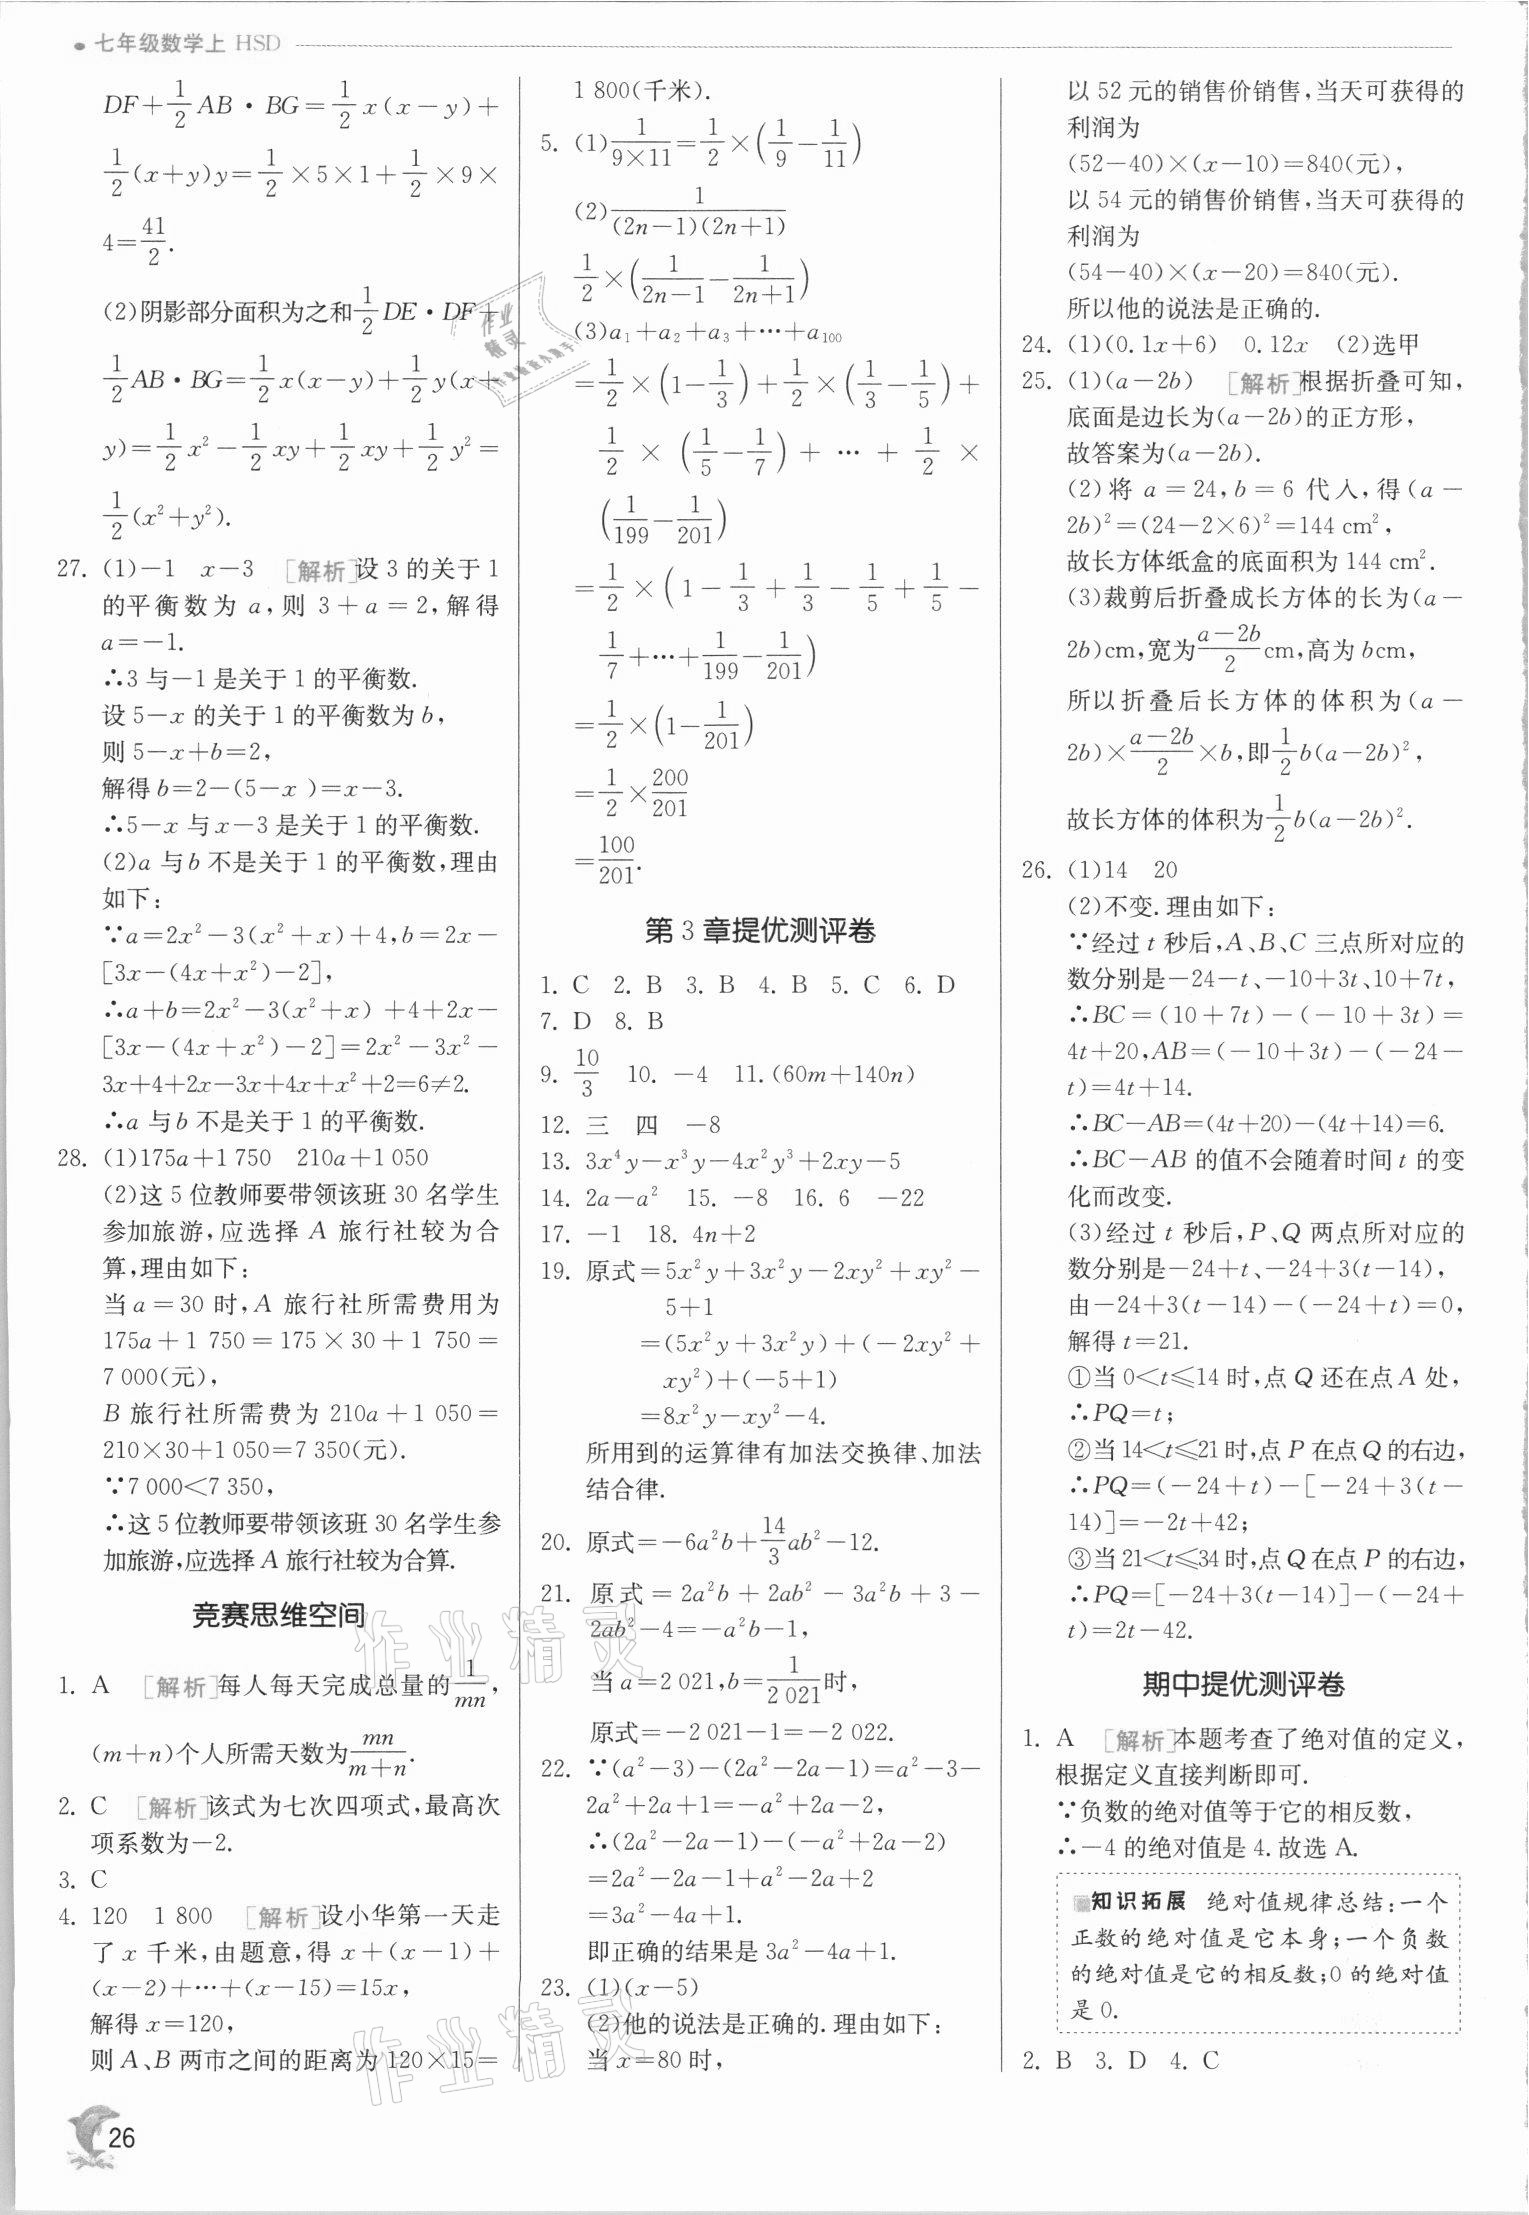 七年级数学上 HSD
DF+1/2 AB·BG=1/2 x(x-y)+
1/2(x+y)y=1/2×5×1+1/2×9×
4=41/2.
(2)阴影部分面积为之和1/2 DE·DF+
1/2 AB·BG=1/2 x(x-y)+1/2 y(x+
y)=1/2 x²-1/2 xy+1/2 xy+1/2 y²=
1/2(x²+y²).
27. (1)-1 x-3 [解析]设3的关于1
的平衡数为a,则3+a=2,解得
a=-1.
∴3与-1是关于1的平衡数.
设5-x的关于1的平衡数为b,
则5-x+b=2,
解得b=2-(5-x )=x-3.
∴5-x与x-3是关于1的平衡数.
(2)a与b不是关于1的平衡数,理由
如下:
∵a=2x²-3(x²+x)+4,b=2x-
[3x-(4x+x²)-2],
∴a+b=2x²-3(x²+x) +4+2x-
[3x-(4x+x²)-2]=2x²-3x²-
3x+4+2x-3x+4x+x²+2=6≠2.
∴a与b不是关于1的平衡数.
28. (1)175a+1 750 210a+1 050
(2)这5位教师要带领该班30名学生
参加旅游,应选择A旅行社较为合
算,理由如下:
当a=30时,A旅行社所需费用为
175a+1 750=175×30+1 750=
7 000(元),
B旅行社所需费为210a+1 050=
210×30+1 050=7 350(元).
∵7 000<7 350,
∴这5位教师要带领该班30名学生参
加旅游,应选择A旅行社较为合算.
竞赛思维空间
1. A [解析]每人每天完成总量的1/mn,
(m+n)个人所需天数为mn/(m+n).
2. C [解析]该式为七次四项式,最高次
项系数为-2.
3. C
4. 120 1 800 [解析]设小华第一天走
了x千米,由题意,得x+(x-1)+
(x-2)+…+(x-15)=15x,
解得x=120,
则A、B两市之间的距离为120×15=
1 800(千米).
5. (1)1/(9×11)=1/2×(1/9-1/11)
(2)1/((2n-1)(2n+1))
1/2×(1/(2n-1)-1/(2n+1))
(3)a₁+a₂+a₃+…+a₁₀₀
=1/2×(1-1/3)+1/2×(1/3-1/5)+
1/2×(1/5-1/7)+…+1/2×
(1/199-1/201)
=1/2×(1-1/3+1/3-1/5+1/5-
1/7+…+1/199-1/201)
=1/2×(1-1/201)
=1/2×200/201
=100/201.
第3章提优测评卷
1. C 2. B 3. B 4. B 5. C 6. D
7. D 8. B
9. 10/3 10. -4 11.(60m+140n)
12. 三 四 -8
13. 3x⁴y-x³y-4x²y³+2xy-5
14. 2a-a² 15. -8 16. 6 -22
17. -1 18. 4n+2
19. 原式=5x²y+3x²y-2xy²+xy²-
5+1
=(5x²y+3x²y)+(-2xy²+
xy²)+(-5+1)
=8x²y-xy²-4.
所用到的运算律有加法交换律、加法
结合律.
20. 原式=-6a²b+14/3 ab²-12.
21. 原式=2a²b+2ab²-3a²b+3-
2ab²-4=-a²b-1,
当a=2 021,b=1/2 021时,
原式=-2 021-1=-2 022.
22. ∵(a²-3)-(2a²-2a-1)=a²-3-
2a²+2a+1=-a²+2a-2,
∴(2a²-2a-1)-(-a²+2a-2)
=2a²-2a-1+a²-2a+2
=3a²-4a+1.
即正确的结果是3a²-4a+1.
23. (1)(x-5)
(2)他的说法是正确的.理由如下:
当x=80时,
以52元的销售价销售,当天可获得的
利润为
(52-40)×(x-10)=840(元),
以54元的销售价销售,当天可获得的
利润为
(54-40)×(x-20)=840(元).
所以他的说法是正确的.
24. (1)(0.1x+6) 0.12x (2)选甲
25. (1)(a-2b) [解析]根据折叠可知,
底面是边长为(a-2b)的正方形,
故答案为(a-2b).
(2)将a=24,b=6代入,得(a-
2b)²=(24-2×6)²=144 cm²,
故长方体纸盒的底面积为144 cm².
(3)裁剪后折叠成长方体的长为(a-
2b)cm,宽为(a-2b)/2 cm,高为bcm,
所以折叠后长方体的体积为(a-
2b)×(a-2b)/2×b,即1/2 b(a-2b)²,
故长方体的体积为1/2 b(a-2b)².
26. (1)14 20
(2)不变.理由如下:
∵经过t秒后,A、B、C三点所对应的
数分别是-24-t、-10+3t、10+7t,
∴BC=(10+7t)-(-10+3t)=
4t+20,AB=(-10+3t)-(-24-
t)=4t+14.
∴BC-AB=(4t+20)-(4t+14)=6.
∴BC-AB的值不会随着时间t的变
化而改变.
(3)经过t秒后,P、Q两点所对应的
数分别是-24+t、-24+3(t-14),
由-24+3(t-14)-(-24+t)=0,
解得t=21.
①当0<t⩽14时,点Q还在点A处,
∴PQ=t;
②当14<t⩽21时,点P在点Q的右边,
∴PQ=(-24+t)-[-24+3(t-
14)]=-2t+42;
③当21<t⩽34时,点Q在点P的右边,
∴PQ=[-24+3(t-14)]-(-24+
t)=2t-42.
期中提优测评卷
1. A [解析]本题考查了绝对值的定义,
根据定义直接判断即可.
∵负数的绝对值等于它的相反数,
∴-4的绝对值是4.故选A.
知识拓展 绝对值规律总结:一个
正数的绝对值是它本身;一个负数
的绝对值是它的相反数;0的绝对值
是0.
2. B 3. D 4. C
26
作业精灵
作业精灵
作业精灵